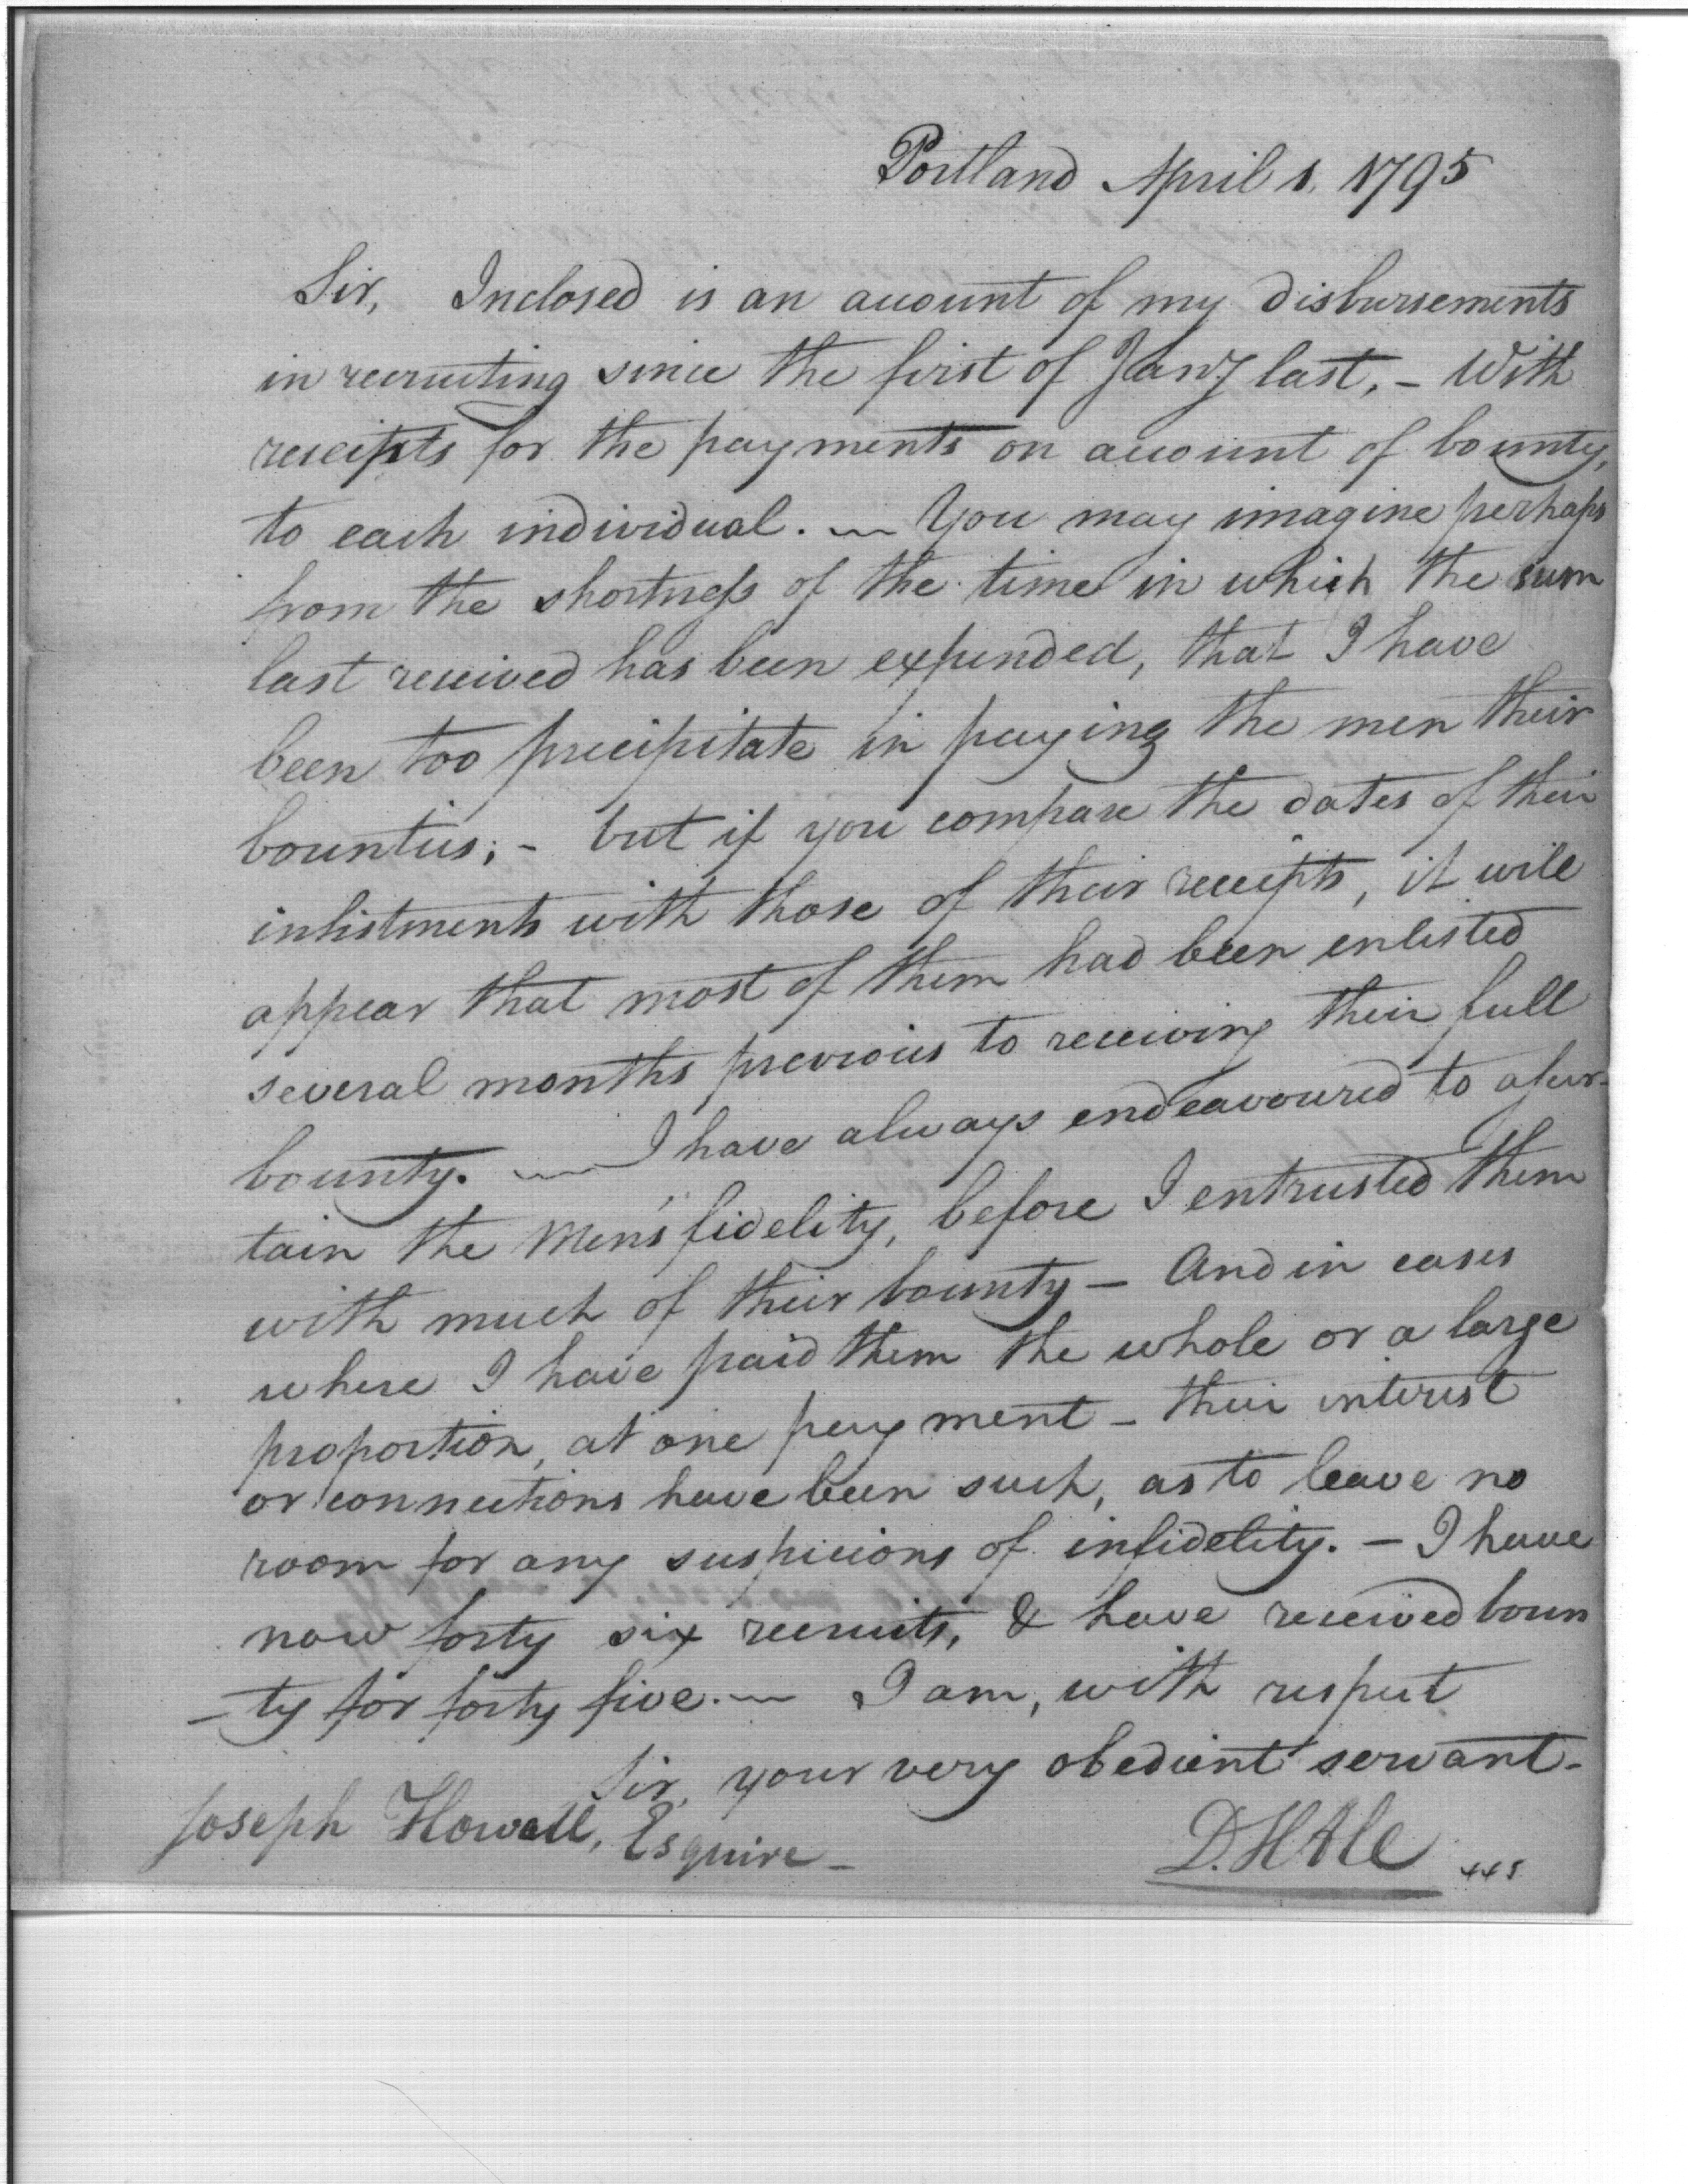 Portland April 1. 1795
Sir, Inclosed is an account of my disbursements
in recruiting since the first of Jany last, - With
receipts for the payments on account of bounty,
to each individual. — You may imagine perhaps
from the shortness of the time in which the sum
last received has been expended, that I have
been too precipitate in paying the men their
bounties; - but if you compare the dates of their
inlistments with those of their receipts, it will
appear that most of them had been enlisted
several months previous to receiving their full
bounty. — I have always endeavoured to ascer-
tain the Men's fidelity, before I entrusted them
with much of their bounty - And in cases
where I have paid them the whole or a large
proportion, at one payment - their interest
or connections have been such, as to leave no
room for any suspicions of infidelity. - I have
now forty six recruits, & have received boun
-ty for forty five. — I am, with respect
Sir, your very obedient servant -
Joseph Howell, Esquire -
D. Hale